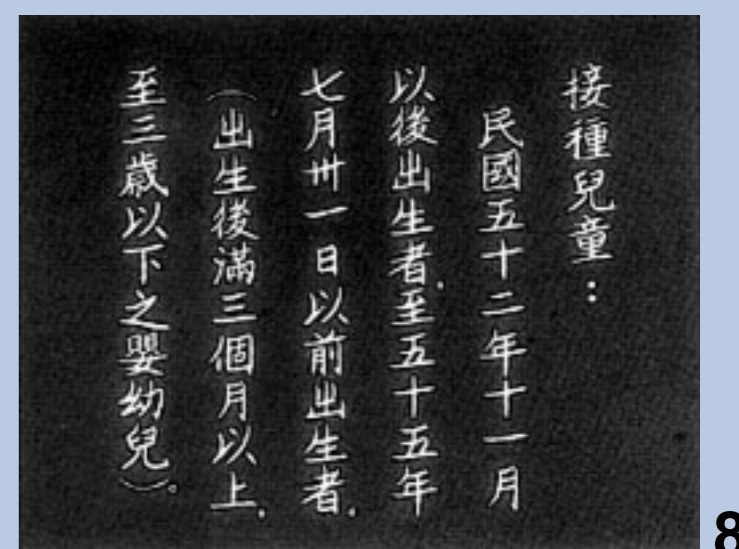 接種兒童：
民國五十二年十一月
以後出生者．至五十五年
七月卅一日以前出生者．
（出生後滿三個月以上．
至三歲以下之嬰幼兒）。
8